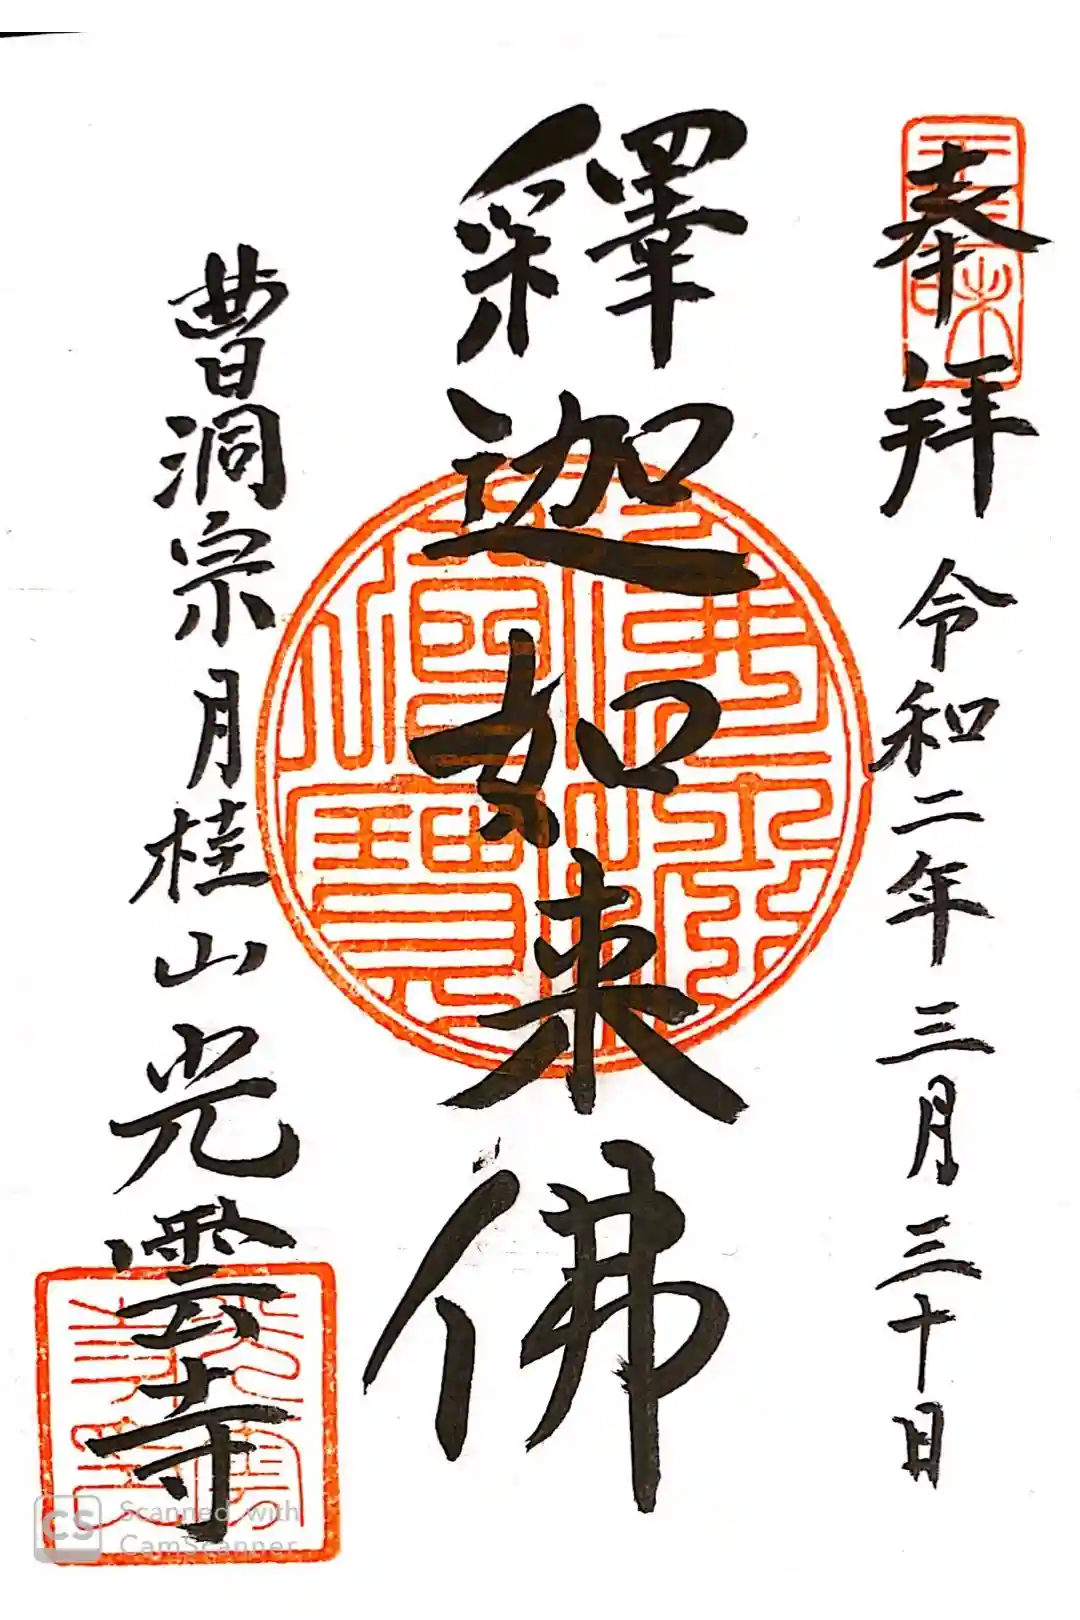 奉拜 令和二年三月三十日
釋迦如来佛
曹洞宗月桂山光雲寺
CS Scanned with
CamScanner